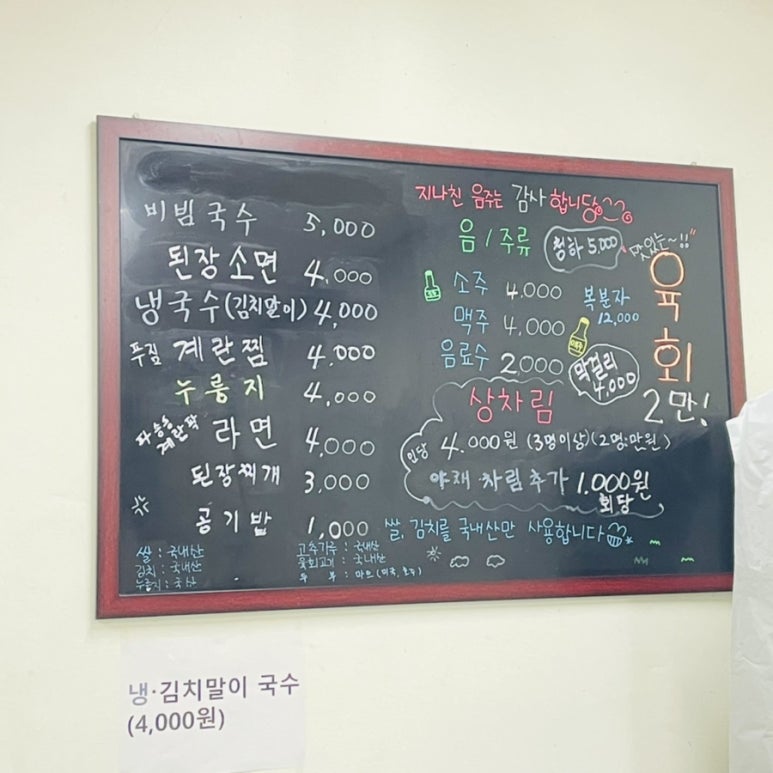 비빔국수 5,000
된장소면 4,000
냉국수(김치말이) 4,000
푸짐 계란찜 4,000
누룽지 4,000
파송송 계란탁 라면 4,000
된장찌개 3,000
공기밥 1,000
쌀 : 국내산
김치 : 국내산
누룽지 : 국산
고추가루 : 국내산
육회고기 : 국내산
지나친 음주는 감사합니당
음/주류
청하 5,000
소주 4,000
맥주 4,000
음료수 2,000
복분자
12,000
막걸리
4,000
맛있는~!!
육회
2만!
상차림
인당 4,000원 (3명이상)(2명:만원)
야채 차림 추가 1,000원
회당
쌀, 김치를 국내산만 사용합니다
냉·김치말이 국수
(4,000원)